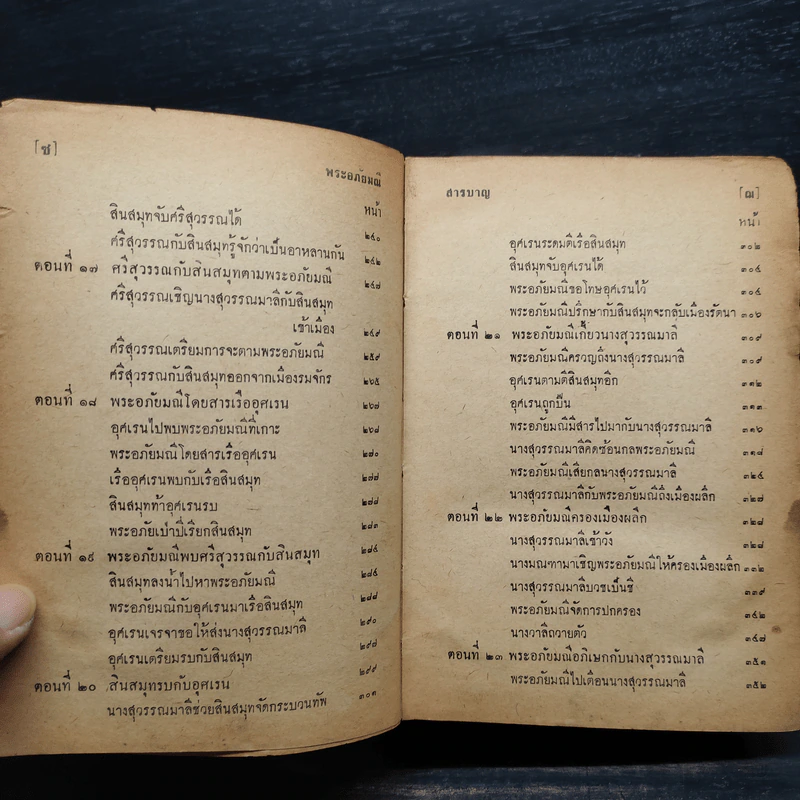 [ซ]
พระอภัยมณี
หน้า
สินสมุทจับศรีสุวรรณได้ ๒๔๐
ศรีสุวรรณกับสินสมุทรู้จักว่าเป็นอาหลานกัน ๒๔๒
ตอนที่ ๑๗ ศรีสุวรรณกับสินสมุทตามพระอภัยมณี ๒๔๗
ศรีสุวรรณเชิญนางสุวรรณมาลีกับสินสมุท
เข้าเมือง ๒๔๙
ศรีสุวรรณเตรียมการจะตามพระอภัยมณี ๒๕๙
ศรีสุวรรณกับสินสมุทออกจากเมืองรมจักร ๒๖๕
ตอนที่ ๑๘ พระอภัยมณีโดยสารเรืออุศเรน ๒๖๗
อุศเรนไปพบพระอภัยมณีที่เกาะ ๒๖๘
พระอภัยมณีโดยสารเรืออุศเรน ๒๗๐
เรืออุศเรนพบกับเรือสินสมุท ๒๗๗
สินสมุทท้าอุศเรนรบ ๒๗๘
พระอภัยเป่าปี่เรียกสินสมุท ๒๘๓
ตอนที่ ๑๙ พระอภัยมณีพบศรีสุวรรณกับสินสมุท ๒๘๕
สินสมุทลงน้ำไปหาพระอภัยมณี ๒๘๕
พระอภัยมณีกับอุศเรนมาเรือสินสมุท ๒๘๘
อุศเรนเจรจาขอให้ส่งนางสุวรรณมาลี ๒๙๐
อุศเรนเตรียมรบกับสินสมุท ๒๙๗
ตอนที่ ๒๐ สินสมุทรบกับอุศเรน ๒๙๙
นางสุวรรณมาลีช่วยสินสมุทจัดกระบวนทัพ ๓๐๑
สารบาญ
[ฌ]
หน้า
อุศเรนระดมตีเรือสินสมุท ๓๐๒
สินสมุทจับอุศเรนได้ ๓๐๔
พระอภัยมณีขอโทษอุศเรนไว้ ๓๐๕
พระอภัยมณีปรึกษากับสินสมุทจะกลับเมืองรัตนา ๓๐๖
ตอนที่ ๒๑ พระอภัยมณีเกี้ยวนางสุวรรณมาลี ๓๐๙
พระอภัยมณีครวญถึงนางสุวรรณมาลี ๓๐๙
อุศเรนตามตีสินสมุทอีก ๓๑๒
อุศเรนถูกปืน ๓๑๓
พระอภัยมณีมีสารไปมากับนางสุวรรณมาลี ๓๑๖
นางสุวรรณมาลีคิดซ้อนกลพระอภัยมณี ๓๑๘
พระอภัยมณีเสียกลนางสุวรรณมาลี ๓๒๔
นางสุวรรณมาลีกับพระอภัยมณีถึงเมืองผลึก ๓๒๗
ตอนที่ ๒๒ พระอภัยมณีครองเมืองผลึก ๓๒๘
นางสุวรรณมาลีเข้าวัง ๓๒๘
นางมณฑามาเชิญพระอภัยมณีให้ครองเมืองผลึก ๓๓๒
นางสุวรรณมาลีบวชเป็นชี ๓๓๙
พระอภัยมณีจัดการปกครอง ๓๔๒
นางวาลีถวายตัว ๓๔๗
ตอนที่ ๒๓ พระอภัยมณีอภิเษกกับนางสุวรรณมาลี ๓๕๑
พระอภัยมณีไปเตือนนางสุวรรณมาลี ๓๕๒